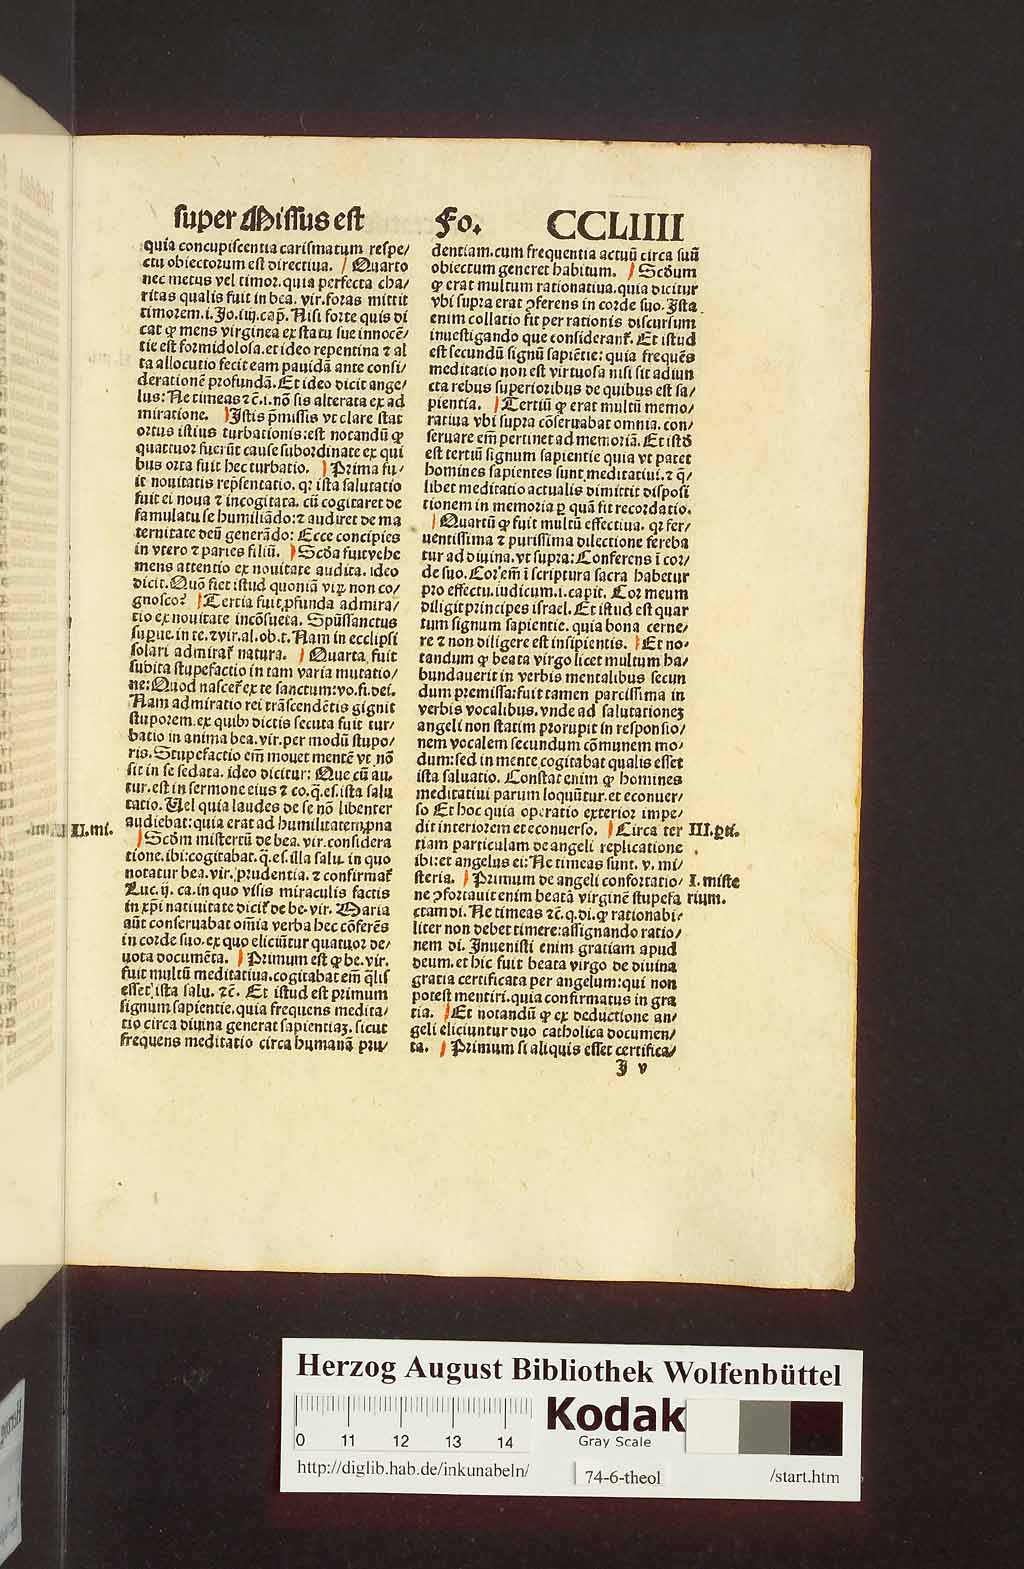 super Missus est Fo. CCLIIII
quia concupiscentia carismatum respe/
ctu obiectorum est directiua. Quarto
nec metus vel timor. quia perfecta cha/
ritas qualis fuit in bea. vir. foras mittit
timorem. i. Jo. iiij. cap̃. Nisi forte quis di
cat ꝙ mens virginea ex statu sue innocẽ/
tie est formidolosa. et ideo repentina ⁊ al
ta allocutio fecit eam pauidã ante consi/
derationẽ profundã. Et ideo dicit ange/
lus: Ne timeas ⁊c̃. i. nõ sis alterata ex ad
miratione. Istis p̃missis vt clare stat
ortus istius turbationis: est notandũ ꝙ
quattuor fuerũt cause subordinate ex qui
bus orta fuit hec turbatio. Prima fu/
it nouitatis rep̃sentatio. qꝛ ista salutatio
fuit ei noua ⁊ incogitata. cũ cogitaret de
famulatu se humiliãdo: ⁊ audiret de ma
ternitate deũ generãdo: Ecce concipies
in vtero ⁊ paries filiũ. Scd̃a fuit vehe
mens attentio ex nouitate audita. ideo
dicit. Quõ fiet istud quoniã virꝝ non co/
gnosco? Tertia fuit ꝓfunda admira/
tio ex nouitate incõsueta. Spũssanctus
suꝑue. in te. ⁊ vir. al. ob. t. Nam in ecclipsi
solari admirat᷑ natura. Quarta fuit
subita stupefactio in tam varia mutatio/
ne: Quod nascet᷑ ex te sanctum: vo. fi. dei.
Nam admiratio rei trãscendẽtis gignit
stuporem. ex quibꝰ dictis secuta fuit tur/
batio in anima bea. vir. per modũ stupo/
ris. Stupefactio em̃ mouet mentẽ vt nõ
sit in se sedata. ideo dicitur: Que cũ au.
tur. est in sermone eius ⁊ co. q̃. es. ista salu
tatio. Uel quia laudes de se nõ libenter
audiebat: quia erat ad humilitatem ꝓna
II. mi.
Scd̃m misteriũ de bea. vir. considera
tione. ibi: cogitabat. q̃. es. illa salu. in quo
notatur bea. vir. prudentia. ⁊ confirmat᷑
Luc. ij. ca. in quo visis miraculis factis
in xp̃i natiuitate dicit᷑ de be. vir. Maria
aũt conseruabat om̃ia verba hec cõferẽs
in corde suo. ex quo eliciũtur quatuor de/
uota documẽta. Primum est ꝙ be. vir.
fuit multũ meditatiua. cogitabat em̃ q̃lis
esset ista salu. ⁊c̃. Et istud est primum
signum sapientie. quia frequens medita/
tio circa diuina generat sapientiaꝫ. sicut
frequens meditatio circa humanã pru/
dentiam. cum frequentia actuũ circa suũ
obiectum generet habitum. Scd̃um
ꝙ erat multum rationatiua. quia dicitur
vbi supra erat ꝯferens in corde suo. Ista
enim collatio fit per rationis discursum
inuestigando que considerant᷑. Et istud
est secundũ signũ sapiẽtie: quia frequẽs
meditatio non est virtuosa nisi sit adiun
cta rebus superioribus de quibus est sa/
pientia. Tertiũ ꝙ erat multũ memo/
ratiua vbi supra cõseruabat omnia. con/
seruare em̃ pertinet ad memoriã. Et istð
est tertiũ signum sapientie quia vt patet
homines sapientes sunt meditatiui. ⁊ q̃/
libet meditatio actualis dimittit disposi
tionem in memoria ꝑ quã fit recordatio.
Quartũ ꝙ fuit multũ effectiua. qꝛ fer/
uentissima ⁊ purissima dilectione fereba
tur ad diuina. vt supra: Conferens ĩ cor/
de suo. Cor em̃ ĩ scriptura sacra habetur
pro effectu. iudicum. i. capit. Cor meum
diligit principes israel. Et istud est quar
tum signum sapientie. quia bona cerne/
re ⁊ non diligere est insipientis. Et no/
tandum ꝙ beata virgo licet multum ha/
bundauerit in verbis mentalibus secun
dum premissa: fuit tamen parcissima in
verbis vocalibus. vnde ad salutationeꝫ
angeli non statim prorupit in responsio/
nem vocalem secundum cõmunem mo/
dum: sed in mente cogitabat qualis esset
ista saluatio. Constat enim ꝙ homines
meditatiui parum loquũtur. et econuer/
so Et hoc quia operatio exterior impe/
dit interiorem et econuerso. Circa ter
III. ꝑti.
tiam particulam de angeli replicatione
ibi: et angelus ei: Ne timeas sunt. v. mi/
steria. Primum de angeli confortatio/
I. miste
rium.
ne ꝯfortauit enim beatã virginẽ stupefa
ctam di. Ne timeas ⁊c̃. q. di. ꝙ rationabi/
liter non debet timere: assignando ratio/
nem di. Inuenisti enim gratiam apud
deum. et hic fuit beata virgo de diuina
gratia certificata per angelum: qui non
potest mentiri. quia confirmatus in gra
tia. Et notandũ ꝙ ex deductione an/
geli eliciuntur duo catholica documen/
ta. Primum si aliquis esset certifica/
J v
Herzog August Bibliothek Wolfenbüttel
0 11 12 13 14
Kodak
Gray Scale
http://diglib.hab.de/inkunabeln/ 74-6-theol /start.htm